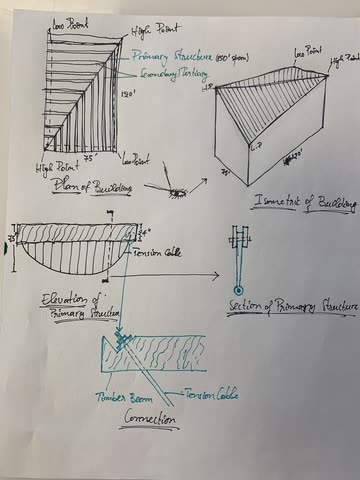 Low Point
High Point
Primary Structure (150' span)
Secondary/Tertiary
120'
75'
High Point
Low Point
Plan of Building
Low Point
High Point
H.P.
L.P
75'
120'
Isometric of Building
4"
Tension Cable
Elevation of
Primary Structure
Section of Primary Structure
Timber Beam
Tension Cable
Connection